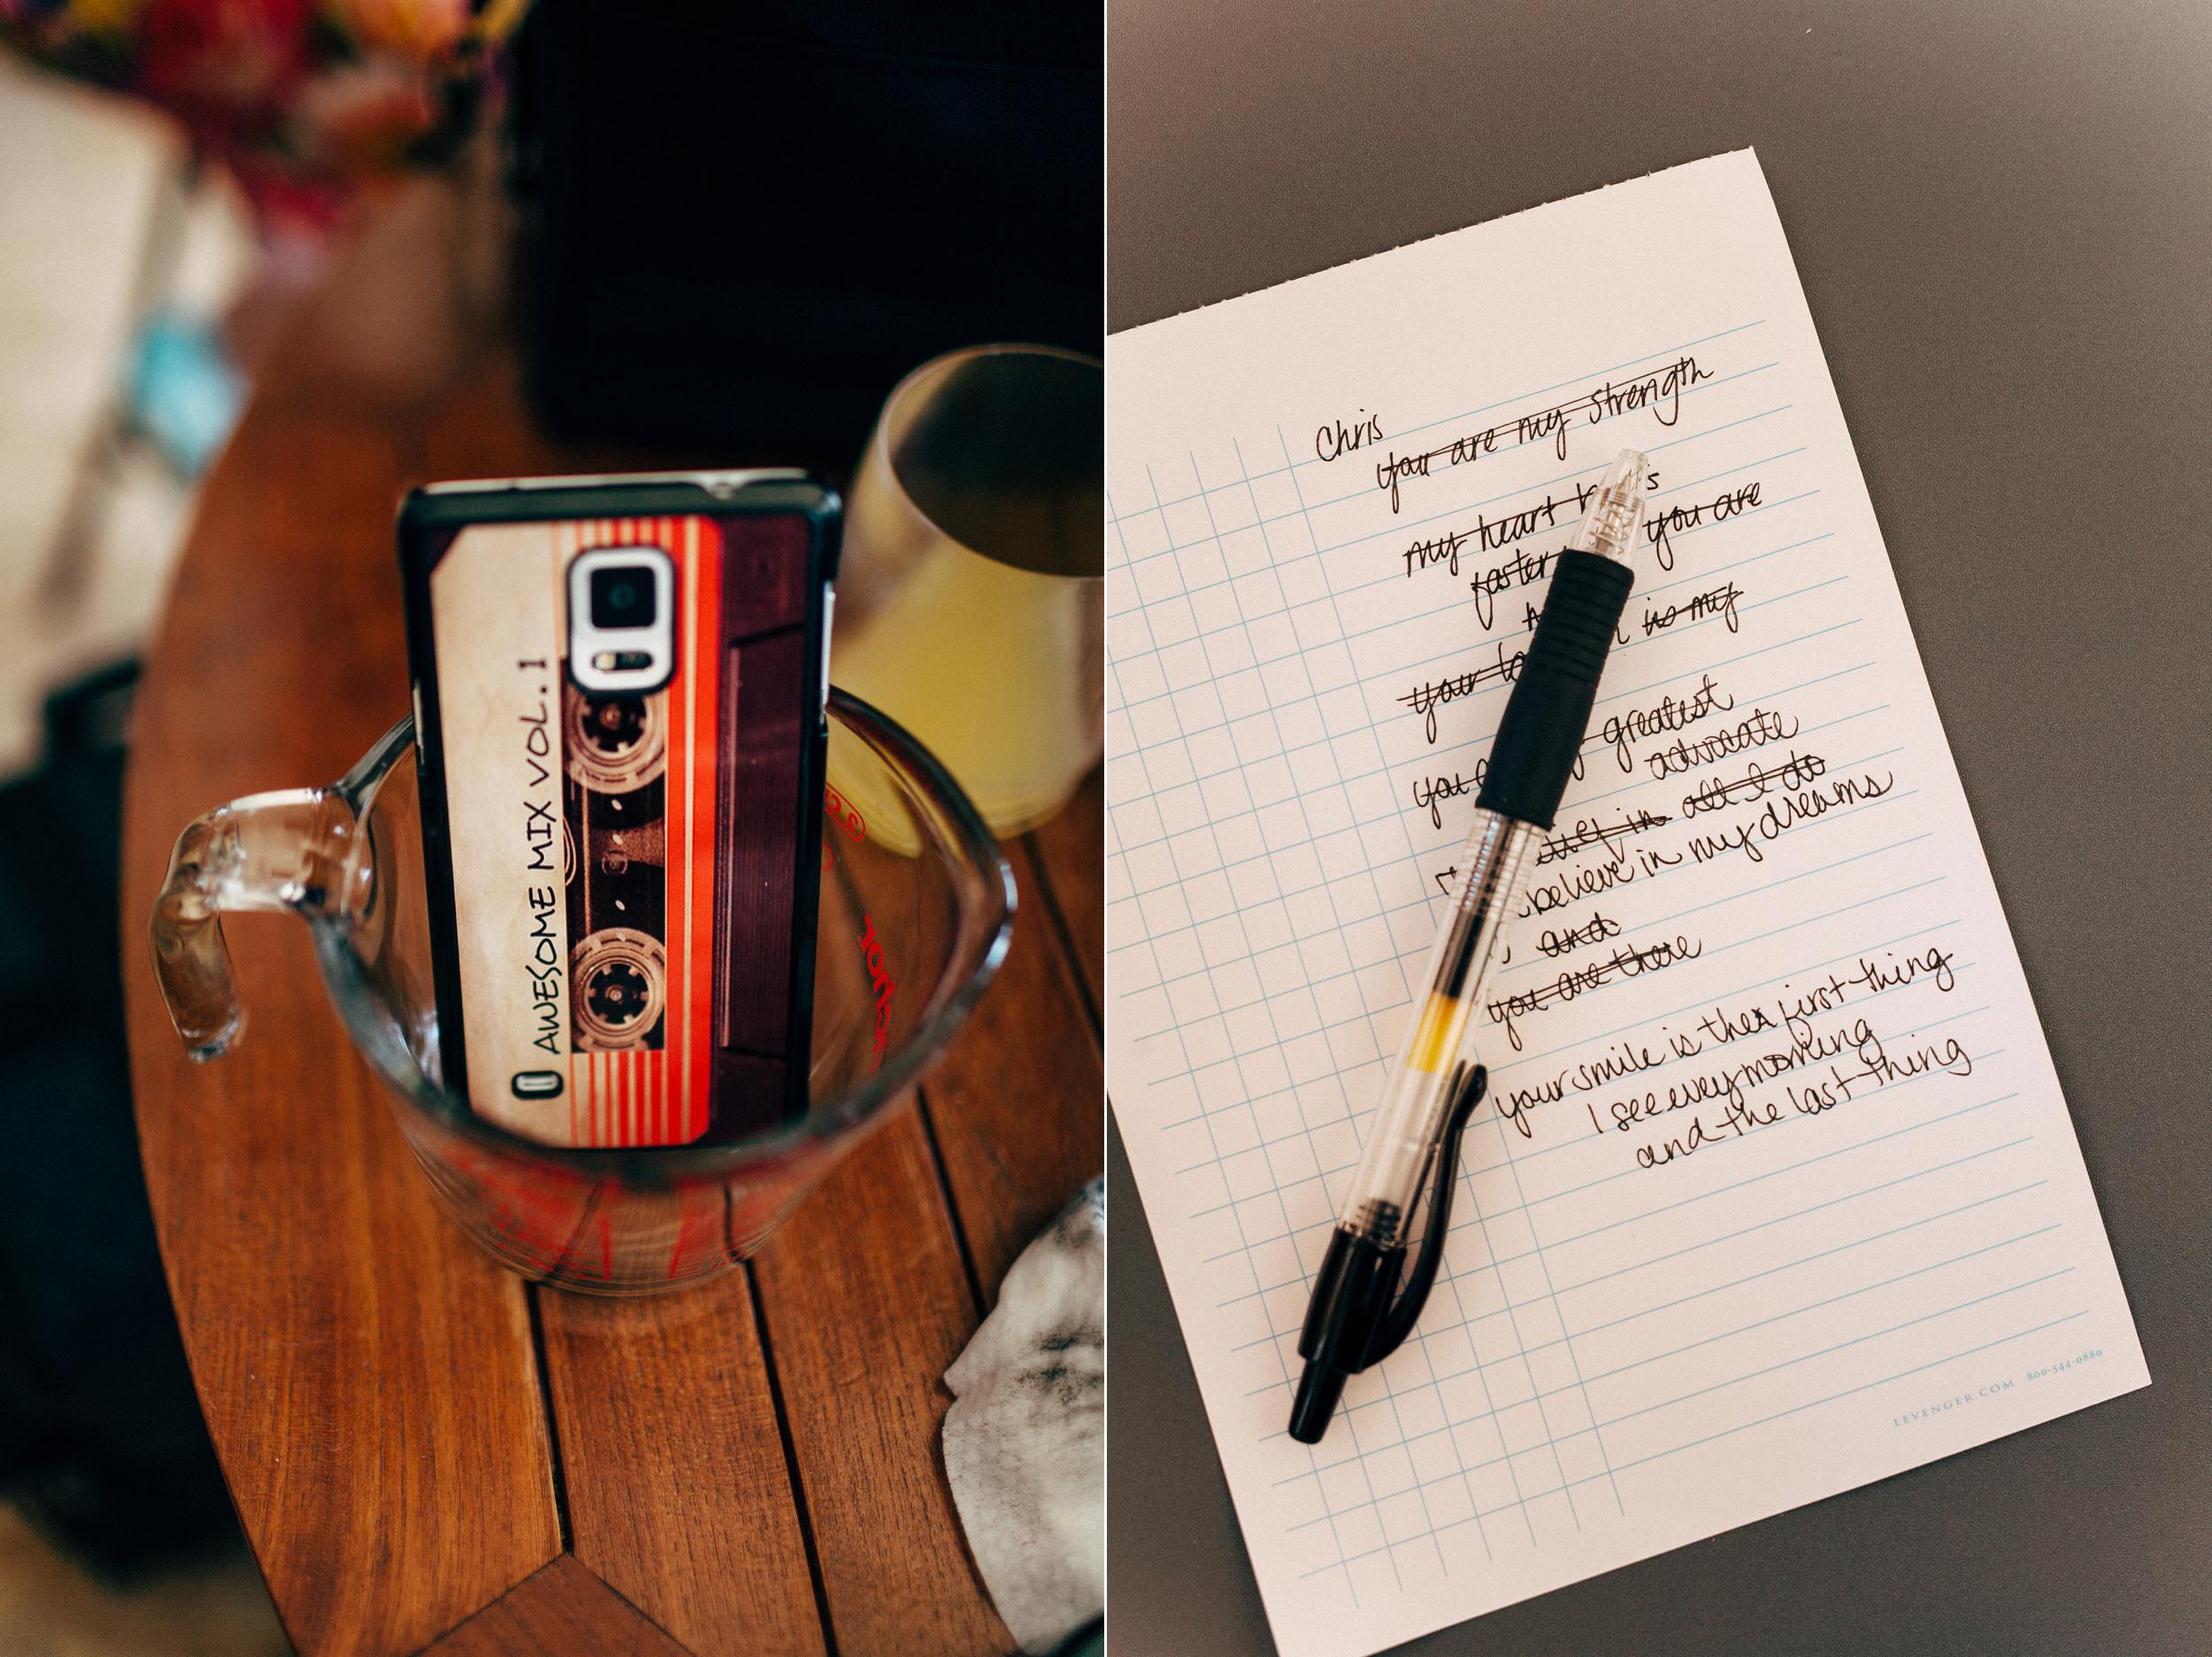 AWESOME MIX VOL.1
Anchor
Chris
you are my strength
my heart
faster you are
is my
your
greatest
advocate
in all I do
believe in my dreams
and
you are there
your smile is the first thing
I see evey morning
and the last thing
LEVENGER.COM 800-544-0880